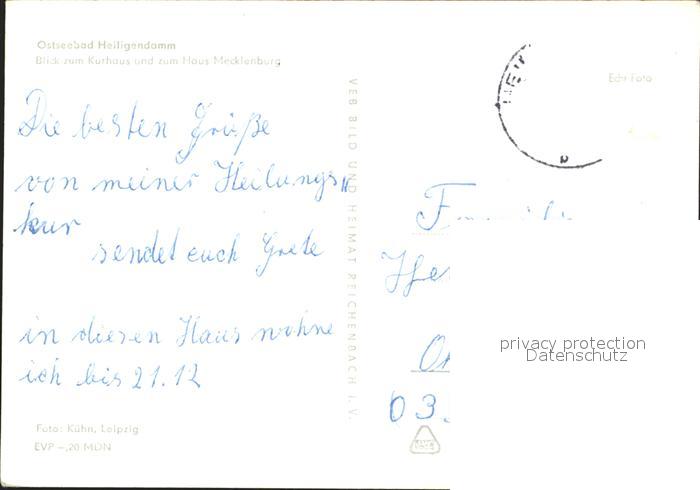 Ostseebad Heiligendamm
Blick zum Kurhaus und zum Haus Mecklenburg
Echt Foto
Die besten Grüße
von meiner Heilungs"
kur
sendet euch Grete
in diesen Haus wohne
ich bis 21.12
VEB BILD UND HEIMAT REICHENBACH I. V.
03
privacy protection
Datenschutz
Foto: Kühn, Leipzig
EVP –,20 MDN